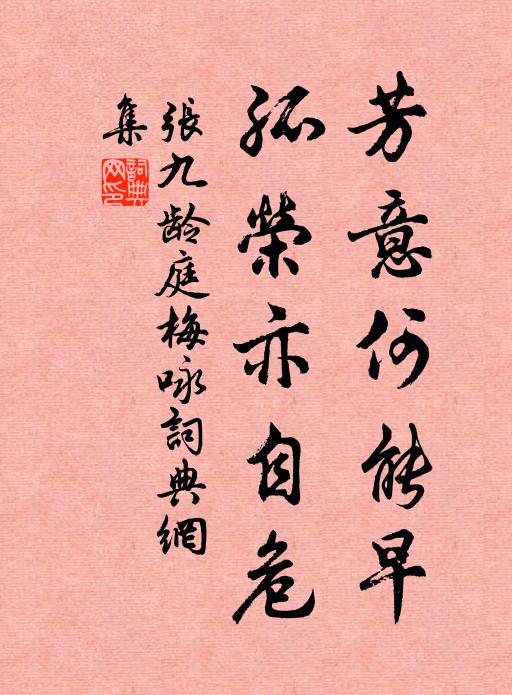 芳意何能早
孤榮亦自危
張九龄庭梅咏詞典網
集
詞典
网印